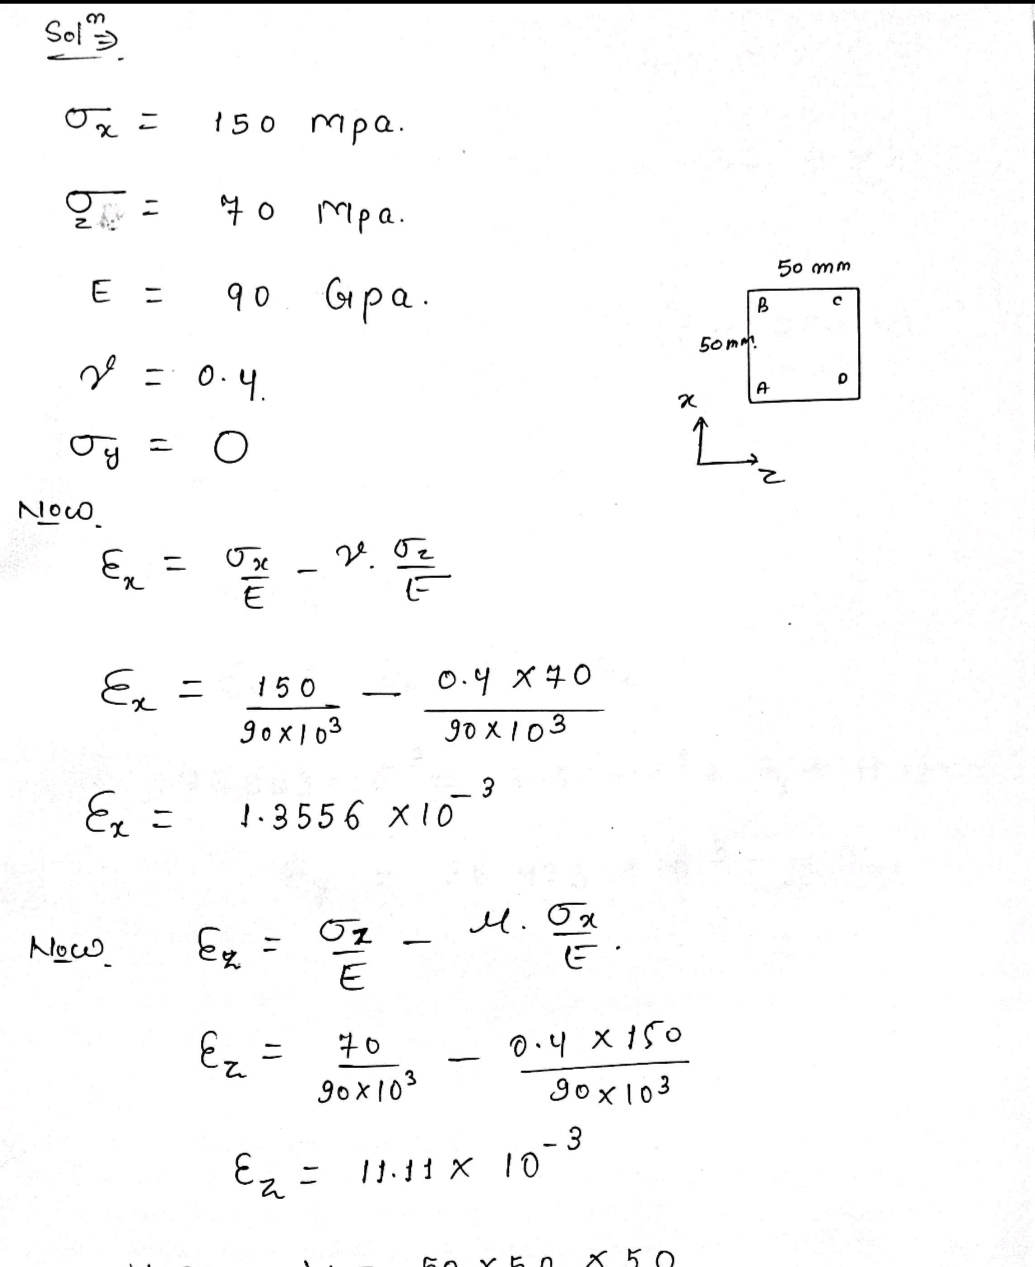 Solⁿ ⇒
σx = 150 mpa.
σz = 70 Mpa.
E = 90 Gpa.
ν = 0.4.
σy = 0
50 mm
B C
50 mm.
A D
x
z
Now.
εx = σx/E - ν. σz/E
εx = 150/90×10³ - 0.4 × 70/90×10³
εx = 1.3556 × 10⁻³
Now εz = σz/E - μ. σx/E.
εz = 70/90×10³ - 0.4 × 150/90×10³
εz = 11.11 × 10⁻³
50 × 50 × 50